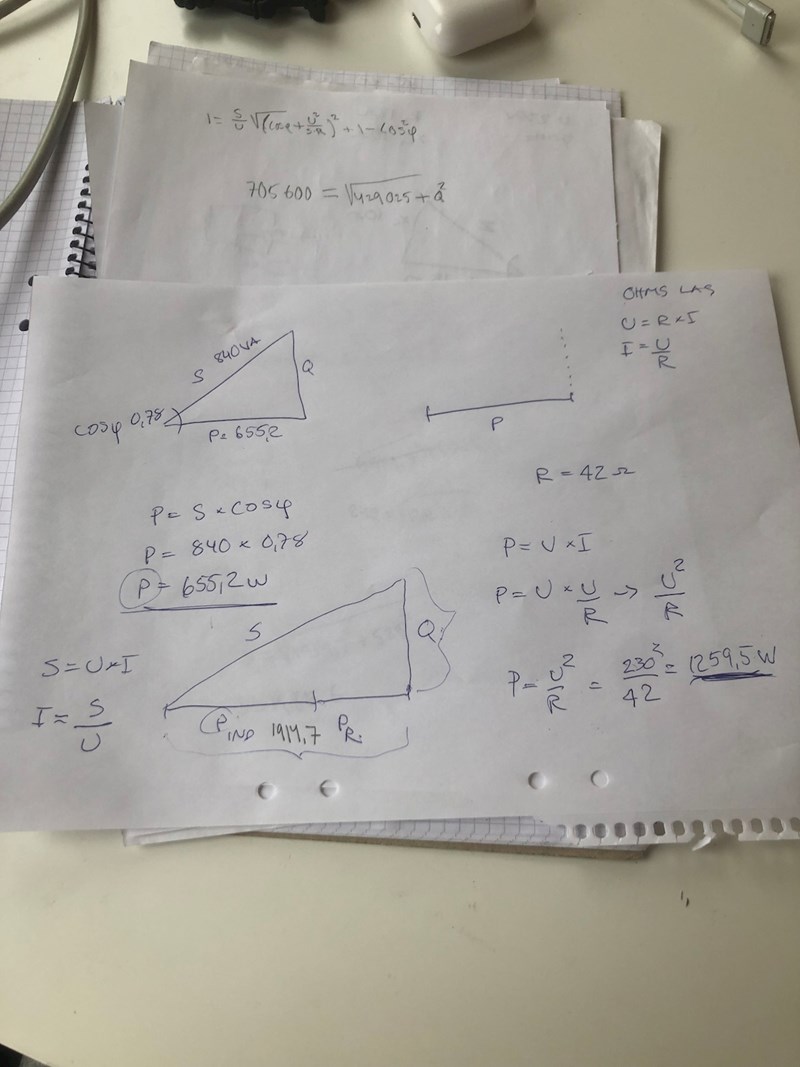 I = S/U √((cosφ + U²/SR)² + 1 - cos²φ
705 600 = √429025 + Q²
OHMS LAG
U = R × I
I = U/R
S 840 VA
Q
cosφ 0,78
P = 655,2
P
R = 42 Ω
P = S × cosφ
P = 840 × 0,78
P = 655,2 W
P = U × I
P = U × U/R → U²/R
P = U²/R = 230²/42 = 1259,5 W
S
Q
S = U × I
I = S/U
P IND 1914,7 P R.